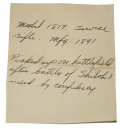 model 1817
rifle. Mfg. 1841
Picked up on battlefield
after battle of Shiloh
used by confederacy